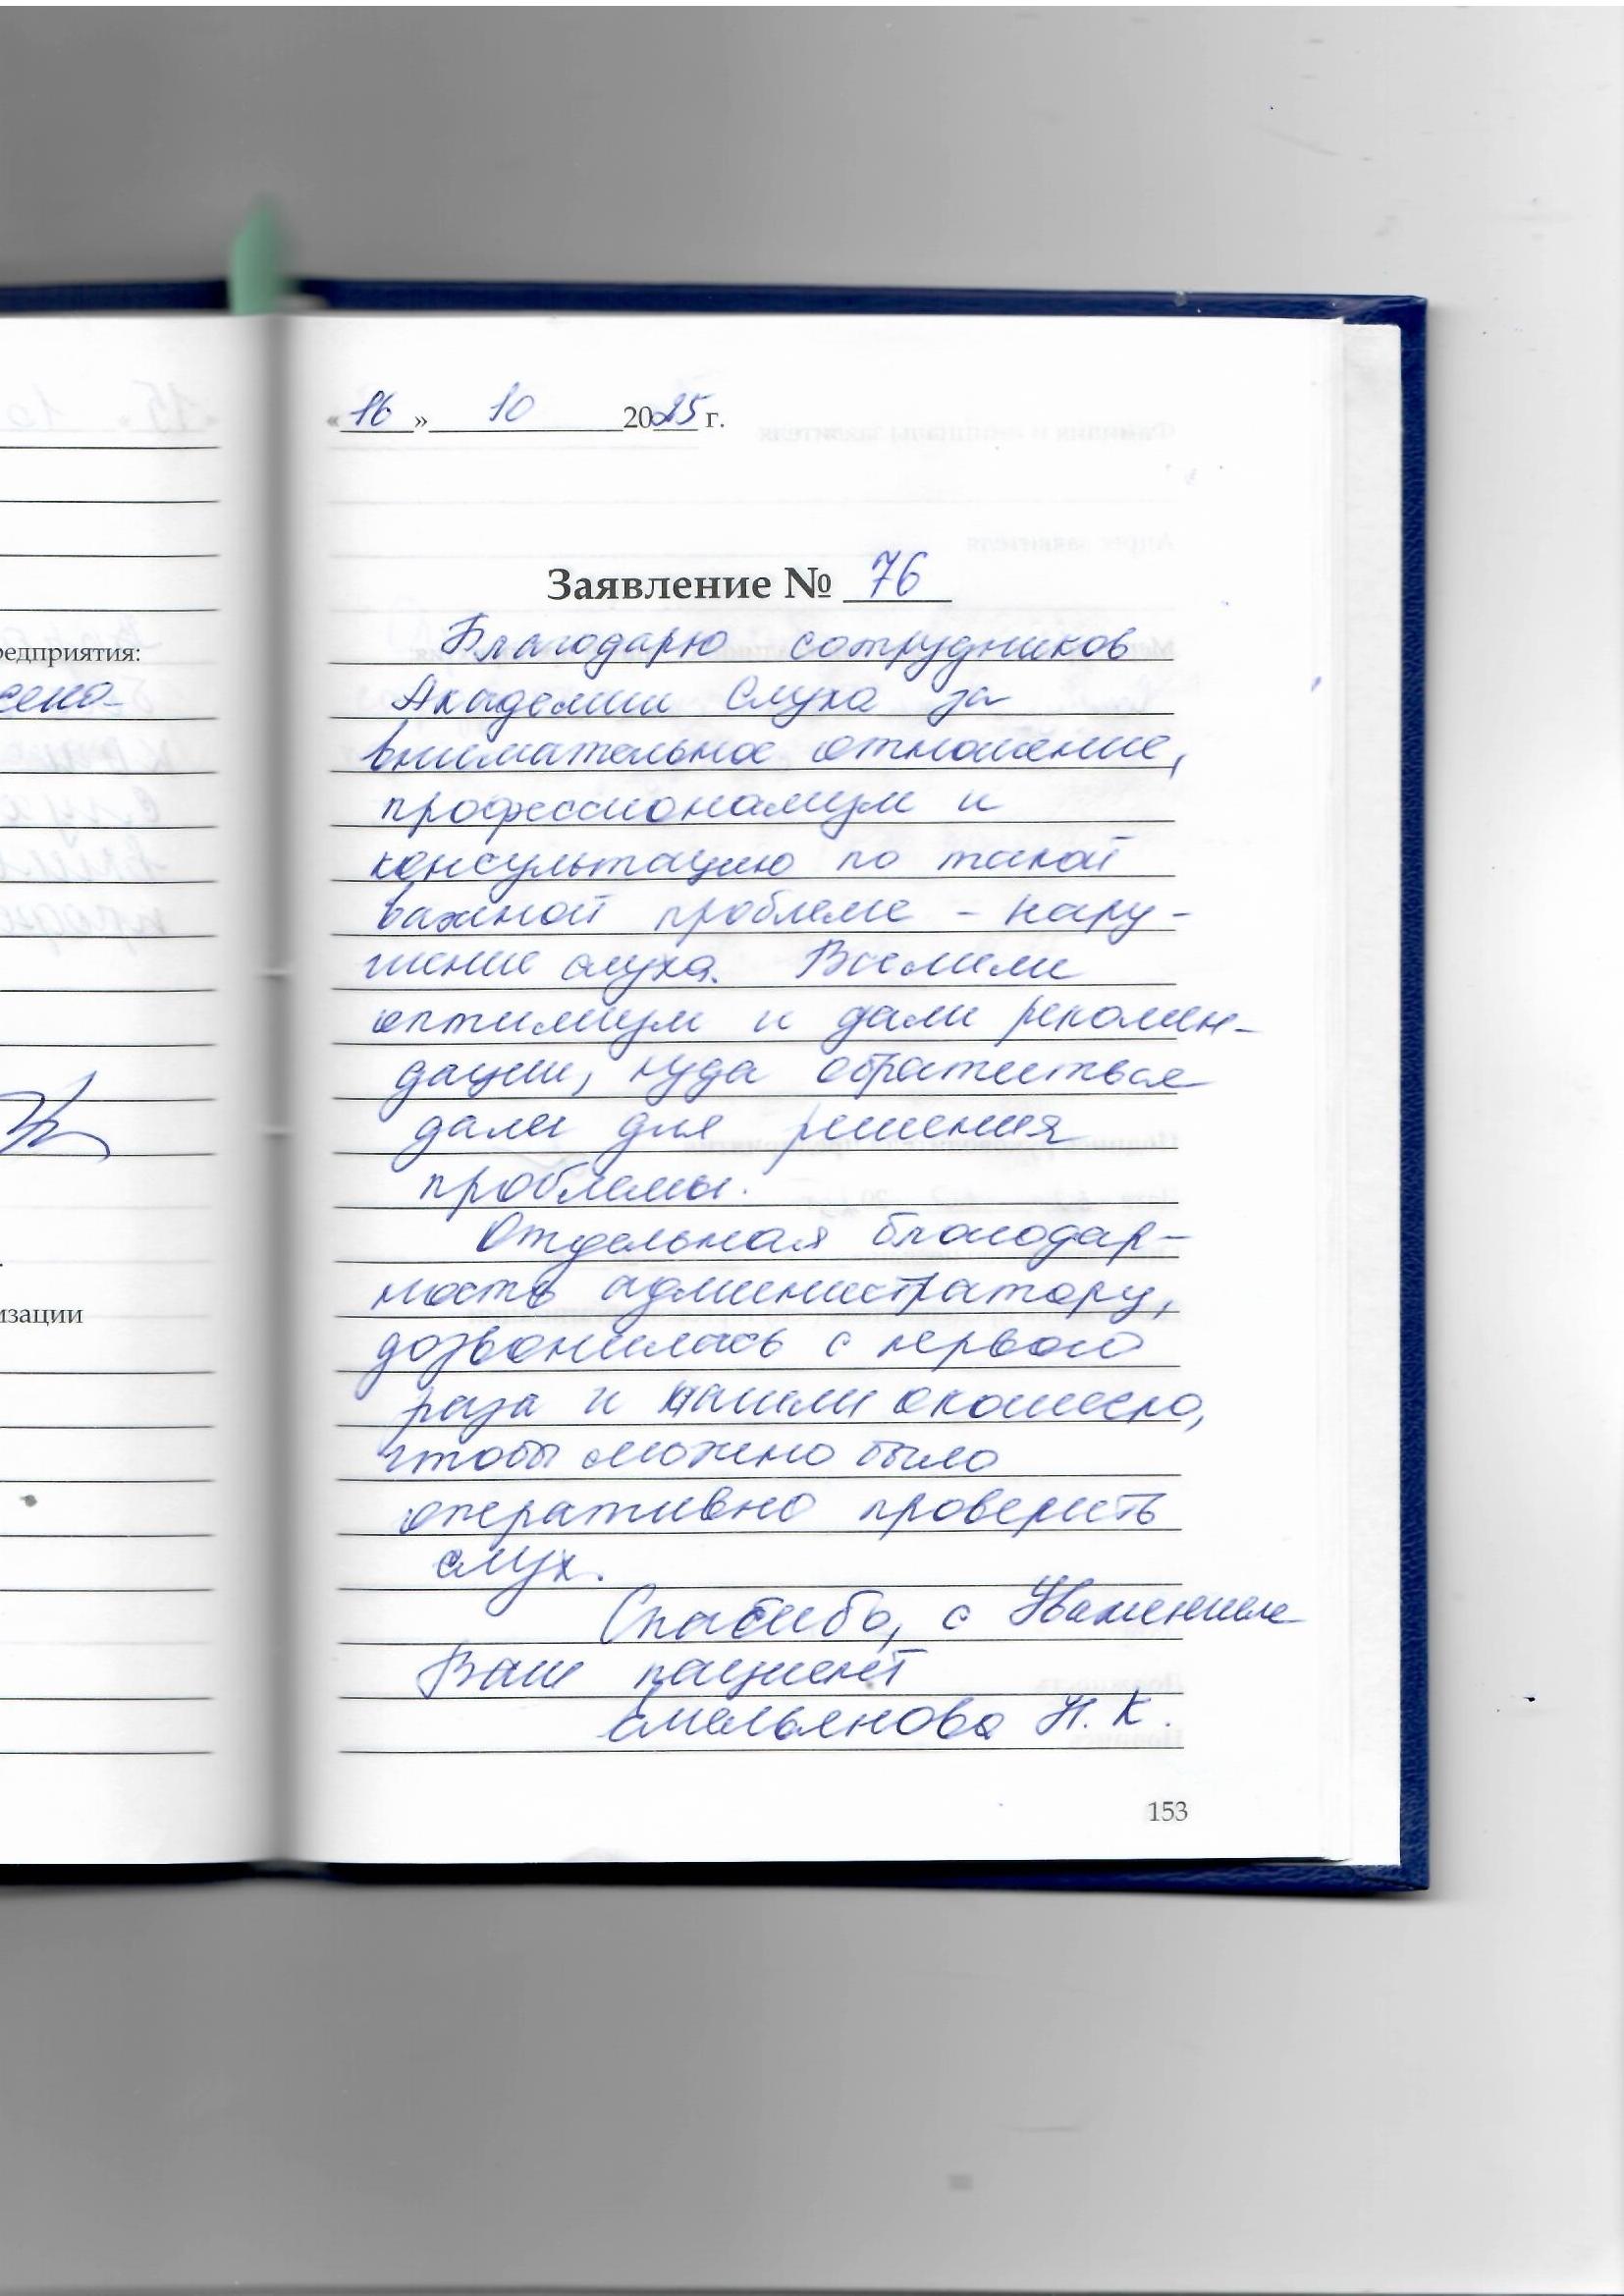 «16» 10 2025 г.
Заявление № 76
Благодарю сотрудников
Академии Слуха за
внимательное отношение,
профессионализм и
консультацию по такой
важной проблеме - нару-
шение слуха. Вселили
оптимизм и дали рекомен-
дации, куда обратиться
далее для решения
проблемы.
Отдельная благодар-
ность администратору,
дозвонилась с первого
раза и нашли окошечко,
чтобы можно было
оперативно проверить
слух.
Спасибо, с Уважением
Ваш пациент
Емельянова Н. К.
153
редприятия:
изации